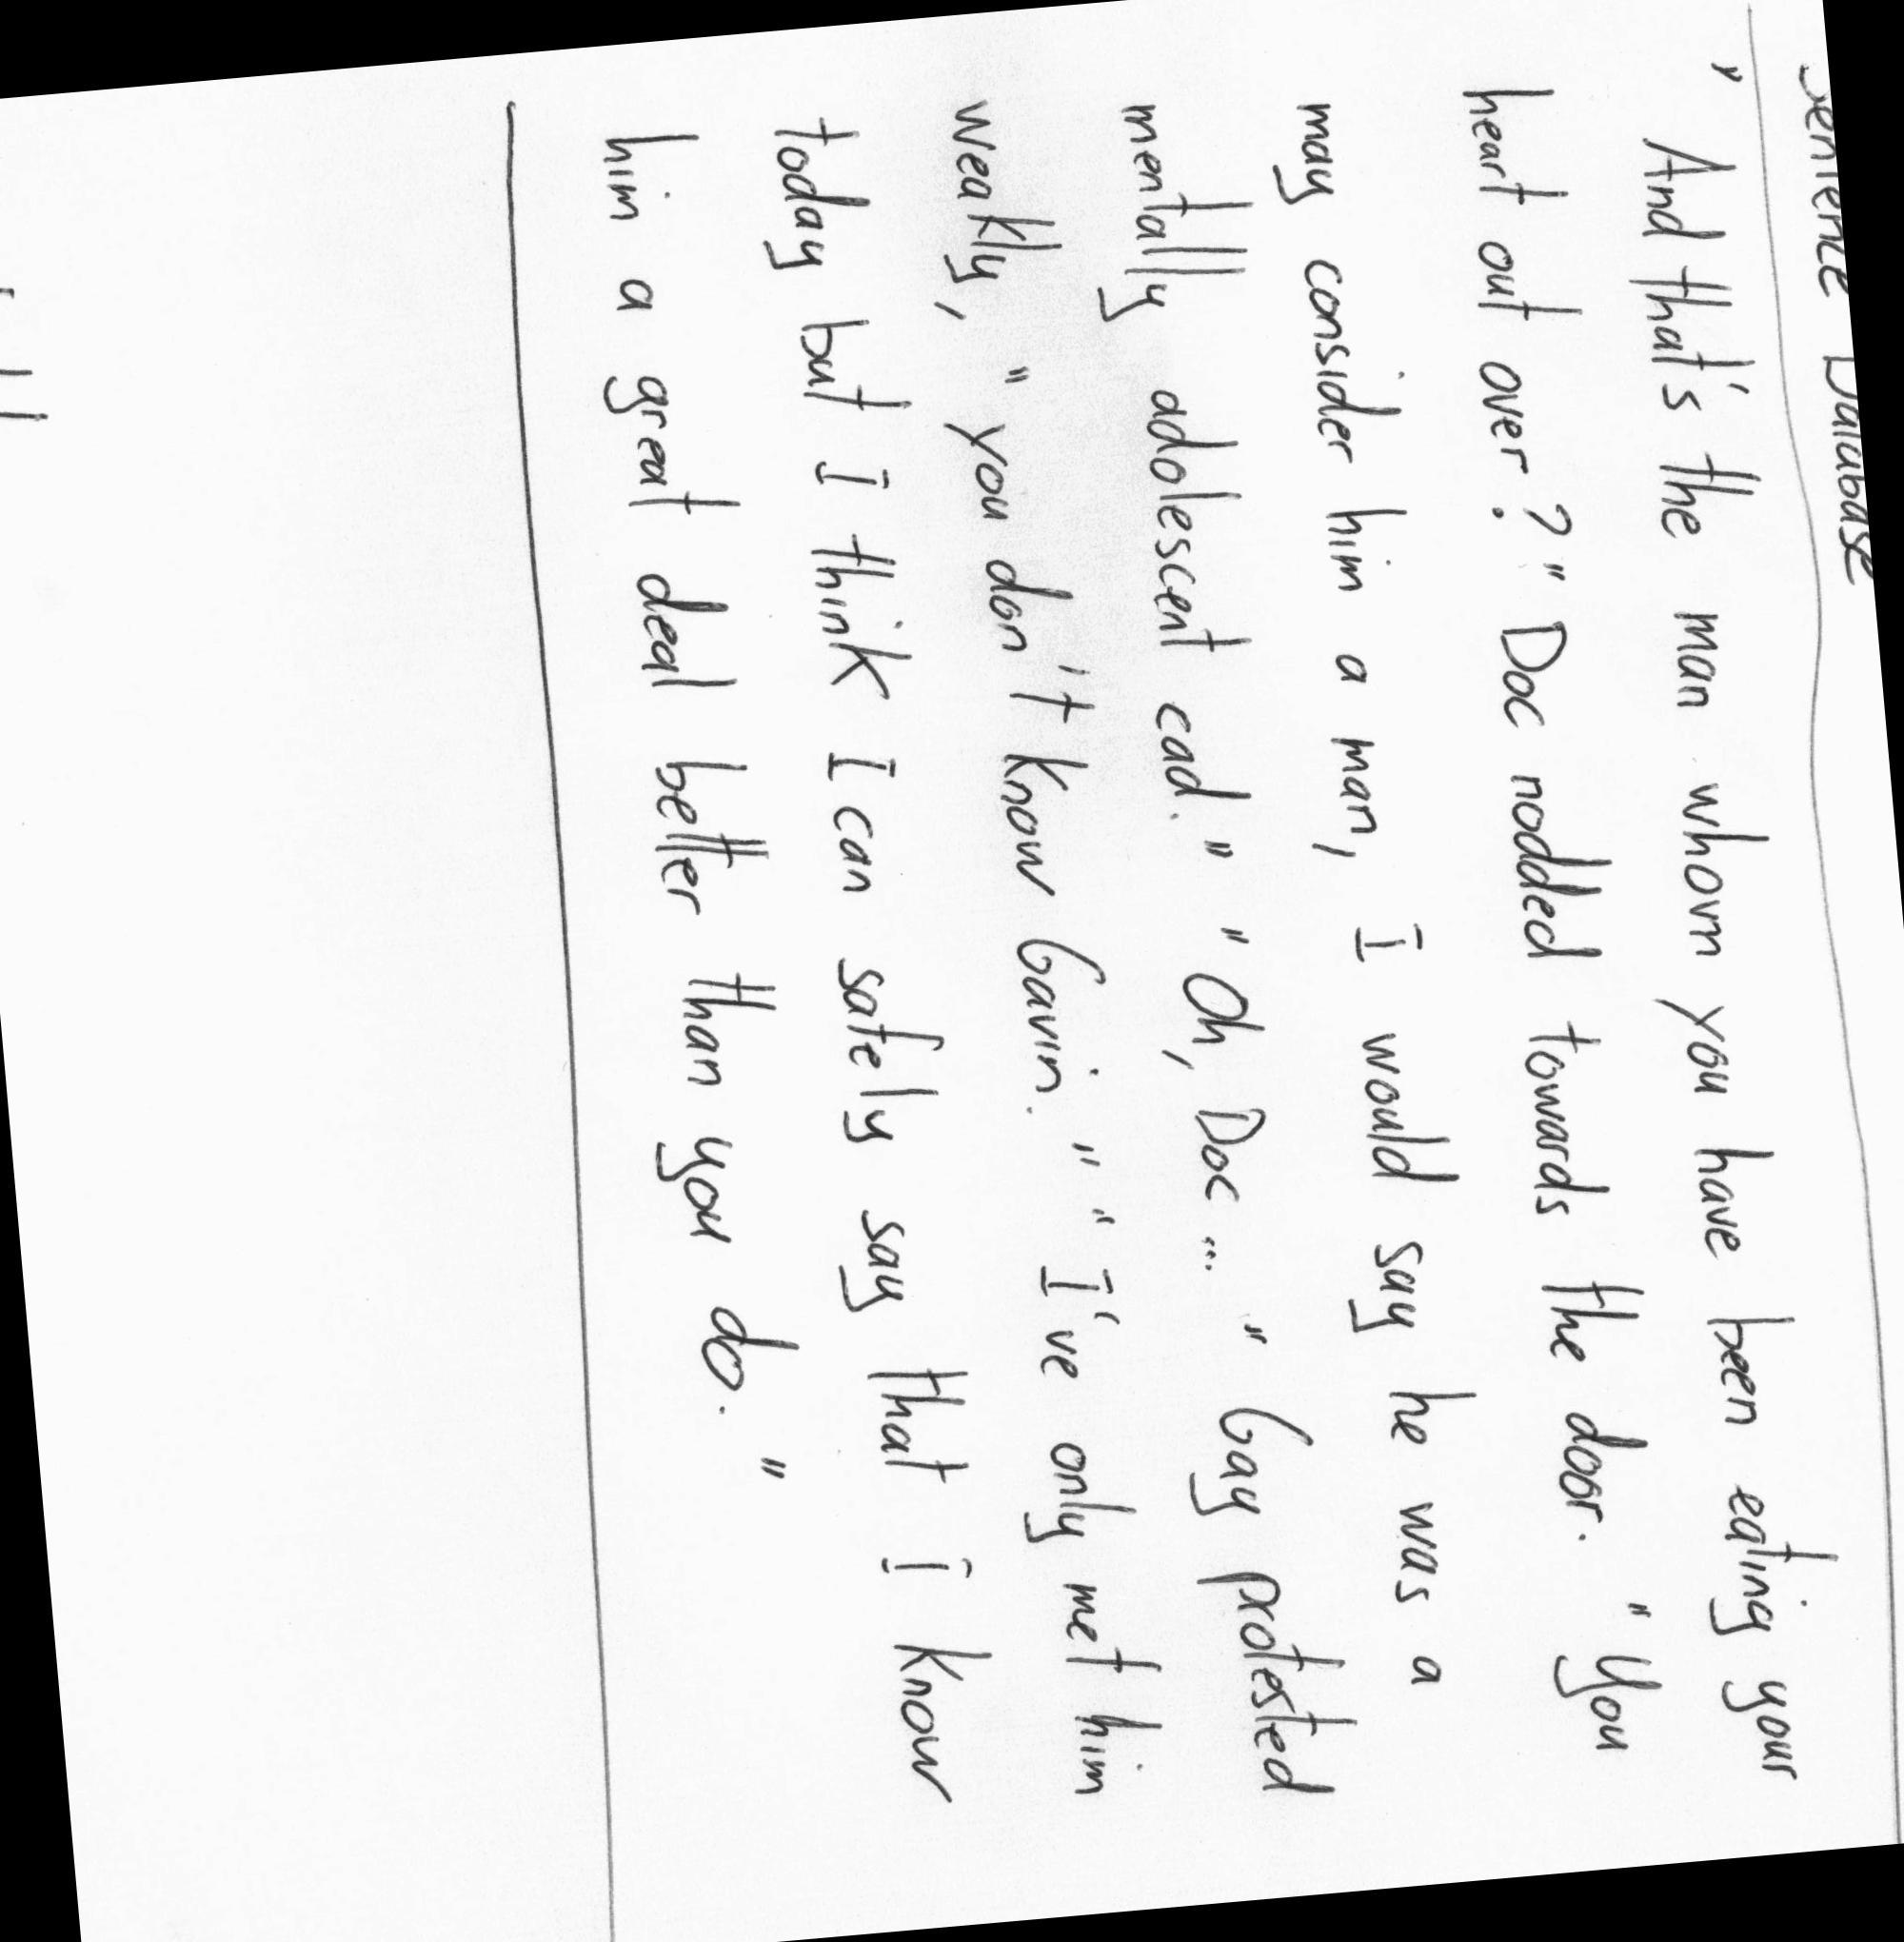 Sentence Database
" And that's the man whom you have been eating your
heart out over ? " Doc nodded towards the door. " You
may consider him a man, I would say he was a
mentally adolescent cad. " " Oh, Doc ... " Gay protested
weakly, " you don't know Gavin. " " I've only met him
today but I think I can safely say that I know
him a great deal better than you do. "